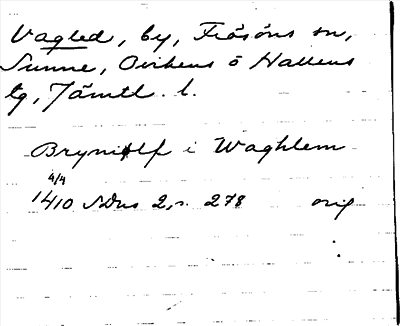 Vagled, by, Frösöns sn,
Sunne, Ovikens o Hallens
tg, Jämtl. l.
Bryniolf i Waghlem
4/4
1410 SDns 2, s. 278 orig